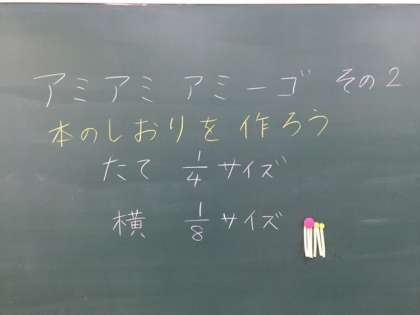 アミアミ アミーゴ その2
本のしおりを作ろう
たて 1/4 サイズ
横 1/8 サイズ